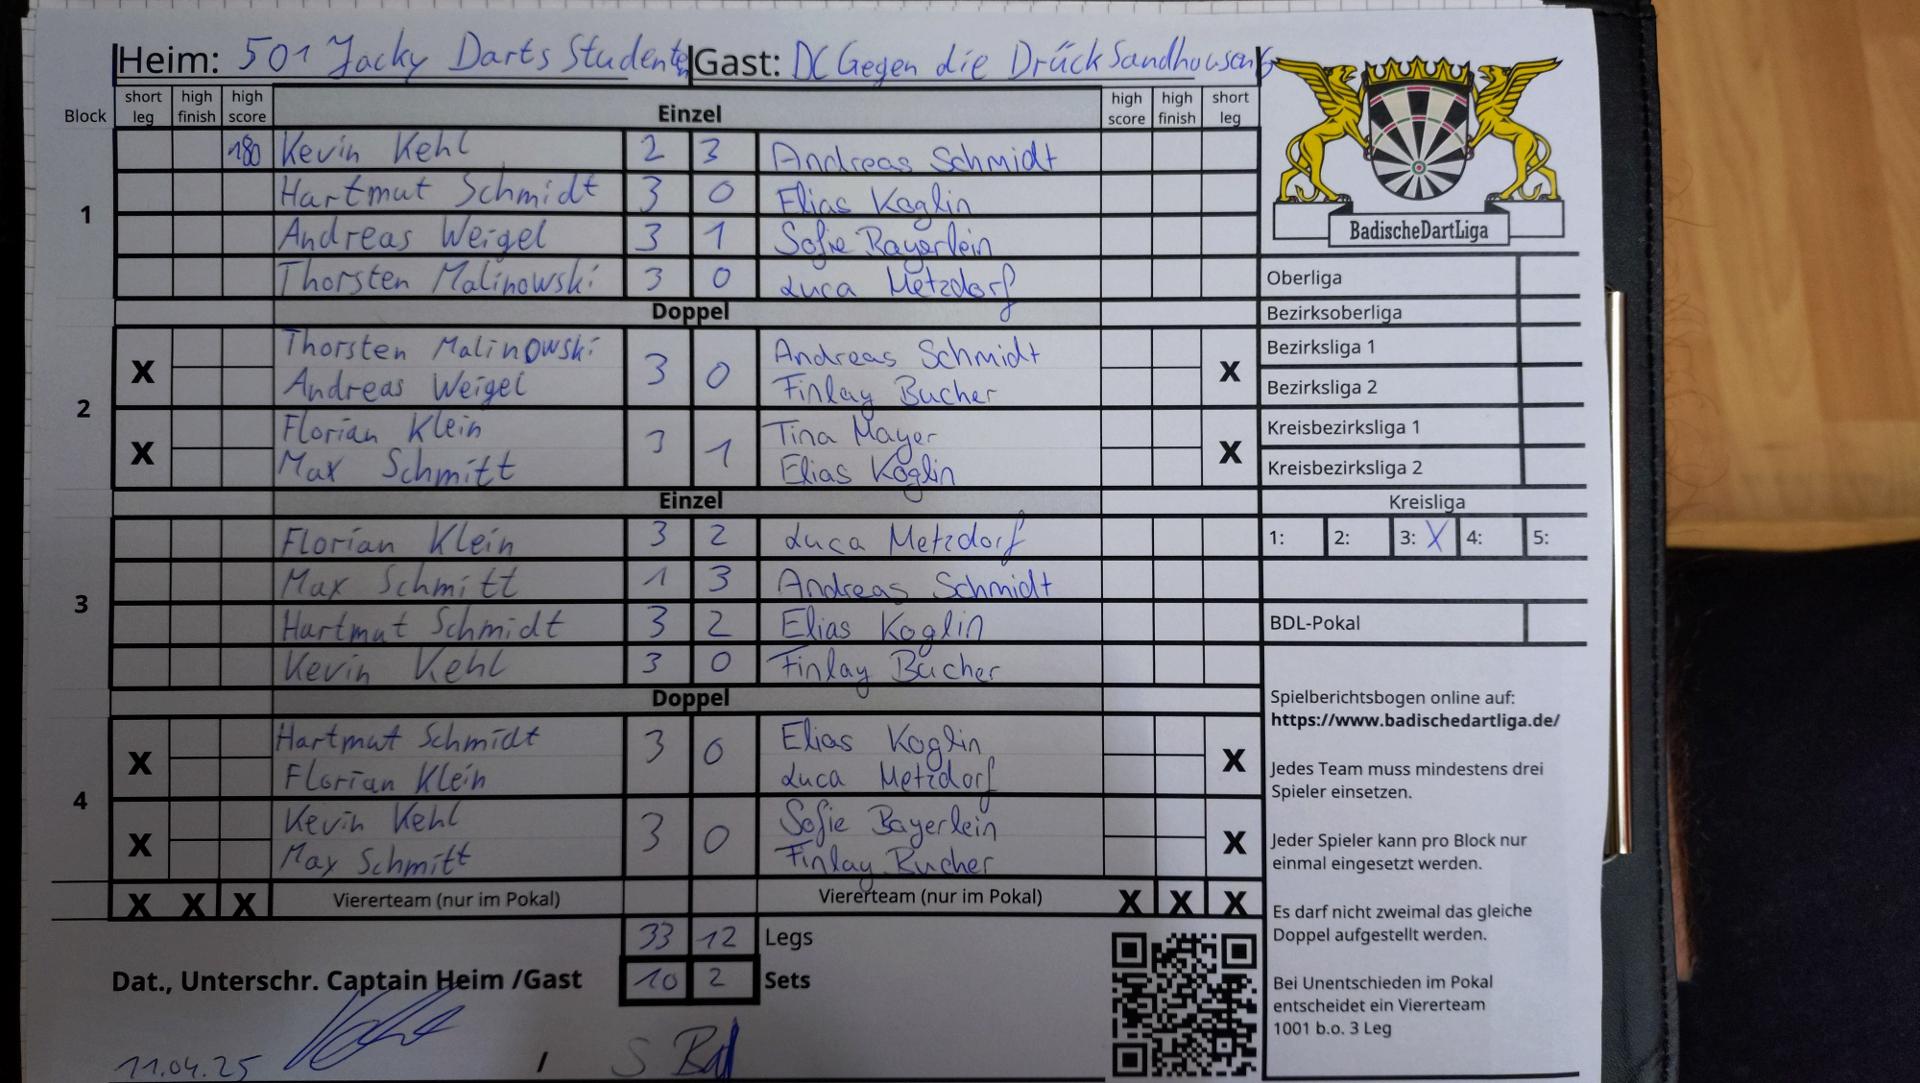 Heim: 501 Jacky Darts Studenten Gast: DC Gegen die Drück Sandhausen
Block short leg high finish high score Einzel high score high finish short leg
180 Kevin Kehl 2 3 Andreas Schmidt
1 Hartmut Schmidt 3 0 Elias Koglin
Andreas Weigel 3 1 Sofie Bayerlein
Thorsten Malinowski 3 0 Luca Metzdorf
Doppel
Thorsten Malinowski Andreas Schmidt
X 3 0 X
Andreas Weigel Finlay Bucher
2
Florian Klein Tina Mayer
X 3 1 X
Max Schmitt Elias Koglin
Einzel
Florian Klein 3 2 Luca Metzdorf
Max Schmitt 1 3 Andreas Schmidt
3 Hartmut Schmidt 3 2 Elias Koglin
Kevin Kehl 3 0 Finlay Bucher
Doppel
Hartmut Schmidt Elias Koglin
X 3 0 X
Florian Klein Luca Metzdorf
4
Kevin Kehl Sofie Bayerlein
X 3 0 X
Max Schmitt Finlay Bucher
X X X Viererteam (nur im Pokal) Viererteam (nur im Pokal) X X X
33 12 Legs
Dat., Unterschr. Captain Heim /Gast 10 2 Sets
11.04.25 /
BadischeDartLiga
Oberliga
Bezirksoberliga
Bezirksliga 1
Bezirksliga 2
Kreisbezirksliga 1
Kreisbezirksliga 2
Kreisliga
1: 2: 3: X 4: 5:
BDL-Pokal
Spielberichtsbogen online auf:
https://www.badischedartliga.de/
Jedes Team muss mindestens drei
Spieler einsetzen.
Jeder Spieler kann pro Block nur
einmal eingesetzt werden.
Es darf nicht zweimal das gleiche
Doppel aufgestellt werden.
Bei Unentschieden im Pokal
entscheidet ein Viererteam
1001 b.o. 3 Leg